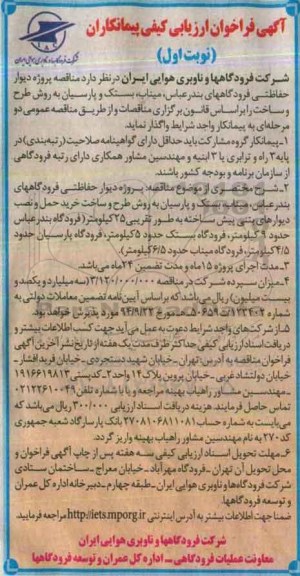 آگهی فراخوان ارزیابی کیفی پیمانکاران
(نوبت اول)
شرکت فرودگاهها و ناوبری هوایی ایران
شرکت فرودگاهها و ناوبری هوایی ایران در نظر دارد مناقصه پروژه دیوار
حفاظتی فرودگاههای بندرعباس، میناب، بستک و پارسیان به روش طرح
و ساخت را بر اساس قانون برگزاری مناقصات و از طریق مناقصه عمومی دو
مرحله‌ای به پیمانکار واجد شرایط واگذار نماید.
۱-پیمانکار گروه مشارکت باید حداقل دارای گواهینامه صلاحیت (رتبه‌بندی) در
پایه ۳ راه و ترابری یا ۳ ابنیه و مهندسین مشاور همکاری دارای رتبه فرودگاهی
از سازمان برنامه و بودجه کشور باشند.
۲-شرح مختصری از موضوع مناقصه: پروژه دیوار حفاظتی فرودگاههای
بندرعباس، میناب، بستک و پارسیان به روش طرح و ساخت خرید حمل و نصب
دیوارهای بتنی پیش ساخته به طور تقریبی ۲۵ کیلومتر (فرودگاه بندرعباس
حدود ۹ کیلومتر، فرودگاه بستک حدود ۵ کیلومتر، فرودگاه پارسیان حدود
۴/۵ کیلومتر، فرودگاه میناب حدود ۶/۵ کیلومتر).
۳-مدت اجرای پروژه ۱۵ ماه و مدت تضمین ۲۴ ماه می‌باشد.
۴-میزان سپرده شرکت در مناقصه ۳/۱۲۰/۰۰۰/۰۰۰ (سه میلیارد و یکصد و
بیست میلیون) ریال می‌باشد که بر اساس آیین‌نامه تضمین معاملات دولتی به
شماره ۱۲۳۴۰۲/ت۵۰۶۵۹هـ مورخ ۹۴/۹/۲۲ مورد پذیرش خواهد بود.
۵-از شرکت‌های واجد شرایط دعوت به عمل می‌آید جهت کسب اطلاعات بیشتر و
دریافت اسناد ارزیابی کیفی حداکثر ظرف مدت یک هفته از تاریخ نشر آخرین آگهی
فراخوان مناقصه به آدرس: تهران-خیابان شهید دستجردی-خیابان فرید افشار-
خیابان دولتشاد غربی-خیابان پروین پلاک ۱۴ واحد ۲-کدپستی ۱۹۱۶۶۱۹۸۱۳
-مهندسین مشاور راهیاب بهینه مراجعه و یا با شماره تلفن ۰۲۱۲۲۶۱۰۰۴۹
تماس حاصل فرمایند. هزینه دریافت اسناد ارزیابی ۳۰۰/۰۰۰ ریال می‌باشد که
می‌بایست به شماره حساب ۲۷۰۸۱۰۶۸۱۱۰۸۱ بانک پارسارگاد شعبه جمهوری
کد ۲۷۰ به نام مهندسین مشاور راهیاب بهینه واریز گردد.
۶-مهلت تحویل اسناد ارزیابی کیفی سه هفته پس از چاپ آگهی فراخوان و
محل تحویل آن تهران-فرودگاه مهرآباد-خیابان معراج-ساختمان ستادی
شرکت فرودگاهها و ناوبری هوایی ایران-طبقه چهارم-دبیرخانه اداره کل عمران
و توسعه فرودگاهها.
ضمنا جهت اطلاعات بیشتر به آدرس اینترنتی http://iets.mporg.ir مراجعه فرمایید.
شرکت فرودگاهها و ناوبری هوایی ایران
معاونت عملیات فرودگاهی-اداره کل عمران و توسعه فرودگاهها